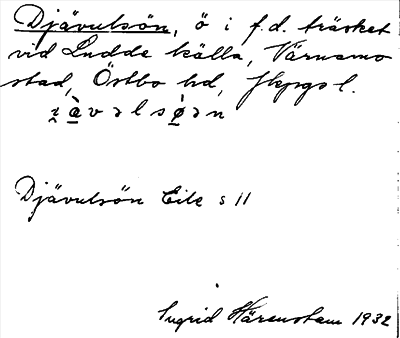 Djävulsön, ö i f.d. träsket
vid Ludde källa, Värnamo
stad, Östbo hd, Jkpgs l.
ɀ̬ à̱ v ə l s ø̱̀ ə n
Djävulsön Eile s 11
Ingrid Härenstam 1932